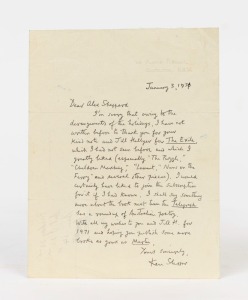 January 3, 1971
Dear Alec Sheppard
I'm sorry that owing to the
derangements of the holidays, I have not
written before to thank you for your
kind note and Jill Hellyer for The Exile,
which I had not seen before and which I
greatly liked (especially "The Puzzle,"
and several other pieces). I would
certainly have liked to join the subscription
for it if I had known. I shall say something
more about the book next time the Telegraph
has a round-up of Australian poetry.
With all my wishes to you and Jill H. for
1971 and hoping you publish some more
books as good as
Yours sincerely,
Ken Slessor